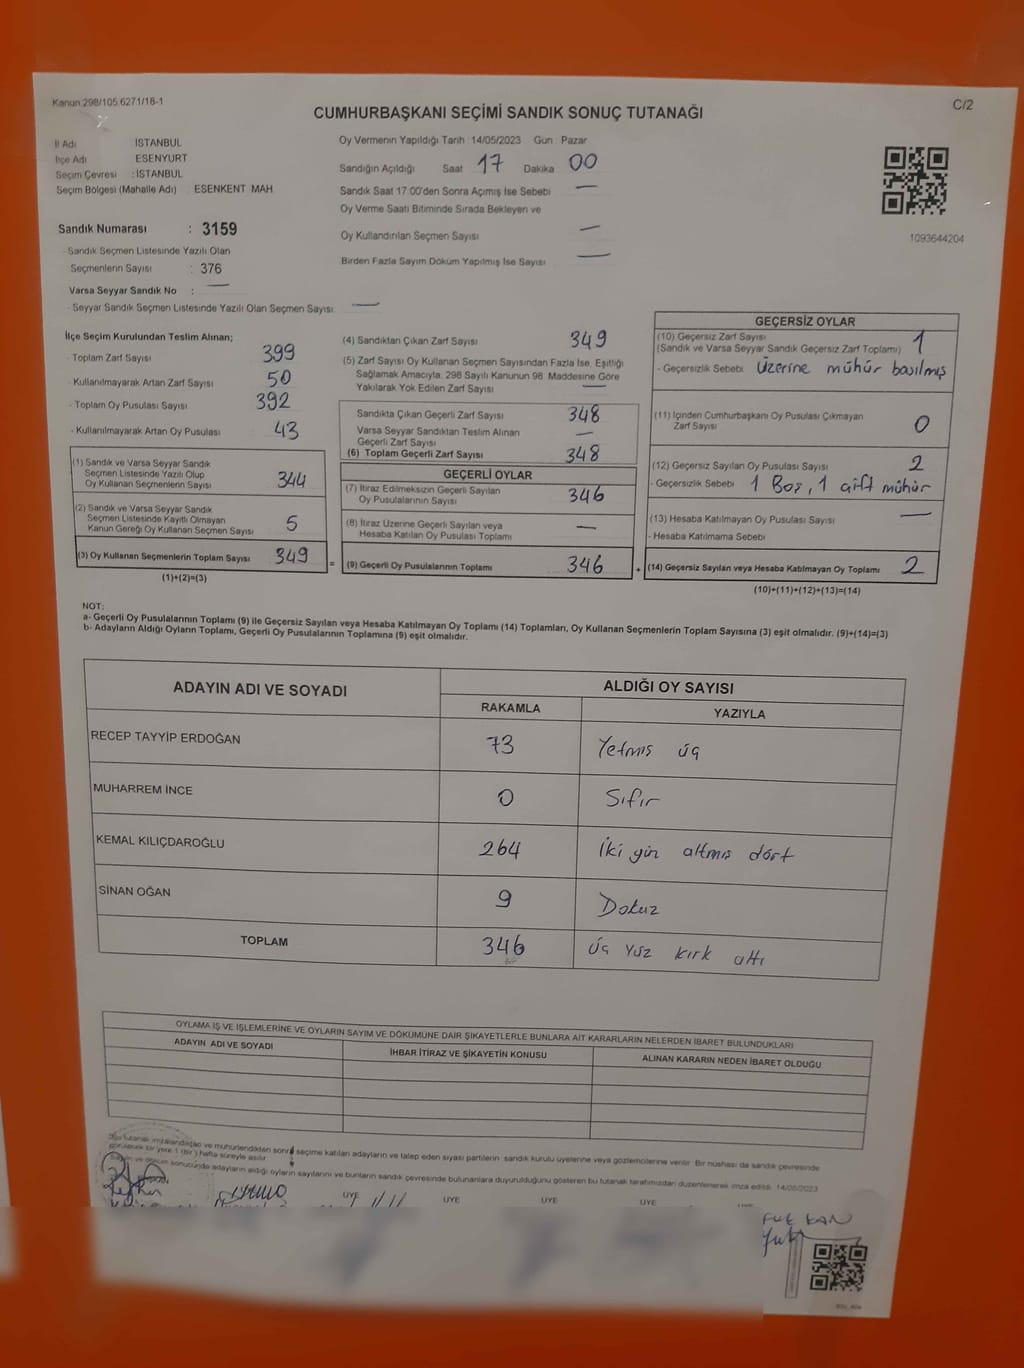 Kanun:298/105.6271/18-1
C/2
CUMHURBAŞKANI SEÇİMİ SANDIK SONUÇ TUTANAĞI
İl Adı : İSTANBUL
İlçe Adı : ESENYURT
Seçim Çevresi : İSTANBUL
Seçim Bölgesi (Mahalle Adı) : ESENKENT MAH.
Sandık Numarası : 3159
- Sandık Seçmen Listesinde Yazılı Olan
Seçmenlerin Sayısı : 376
Varsa Seyyar Sandık No : —
- Seyyar Sandık Seçmen Listesinde Yazılı Olan Seçmen Sayısı: —
Oy Vermenin Yapıldığı Tarih :14/05/2023 Gün : Pazar
Sandığın Açıldığı Saat 17 Dakika 00
Sandık Saat 17:00'den Sonra Açımış İse Sebebi —
Oy Verme Saati Bitiminde Sırada Bekleyen ve
Oy Kullandırılan Seçmen Sayısı —
Birden Fazla Sayım Döküm Yapılmış İse Sayısı —
1093644204
İlçe Seçim Kurulundan Teslim Alınan;
- Toplam Zarf Sayısı 399
- Kullanılmayarak Artan Zarf Sayısı 50
- Toplam Oy Pusulası Sayısı 392
- Kullanılmayarak Artan Oy Pusulası 43
(1) Sandık ve Varsa Seyyar Sandık
Seçmen Listesinde Yazılı Olup
Oy Kullanan Seçmenlerin Sayısı 344
(2) Sandık ve Varsa Seyyar Sandık
Seçmen Listesinde Kayıtlı Olmayan
Kanun Gereği Oy Kullanan Seçmen Sayısı 5
(3) Oy Kullanan Seçmenlerin Toplam Sayısı 349
(1)+(2)=(3)
(4) Sandıktan Çıkan Zarf Sayısı 349
(5) Zarf Sayısı Oy Kullanan Seçmen Sayısından Fazla İse, Eşitliği
Sağlamak Amacıyla, 298 Sayılı Kanunun 98. Maddesine Göre
Yakılarak Yok Edilen Zarf Sayısı —
Sandıkta Çıkan Geçerli Zarf Sayısı 348
Varsa Seyyar Sandıktan Teslim Alınan
Geçerli Zarf Sayısı —
(6) Toplam Geçerli Zarf Sayısı 348
GEÇERLİ OYLAR
(7) İtiraz Edilmeksizin Geçerli Sayılan
Oy Pusulalarının Sayısı 346
(8) İtiraz Üzerine Geçerli Sayılan veya
Hesaba Katılan Oy Pusulası Toplamı —
= (9) Geçerli Oy Pusulalarının Toplamı 346 +
GEÇERSİZ OYLAR
(10) Geçersiz Zarf Sayısı 1
(Sandık ve Varsa Seyyar Sandık Geçersiz Zarf Toplamı)
- Geçersizlik Sebebi Üzerine mühür basılmış
(11) İçinden Cumhurbaşkanı Oy Pusulası Çıkmayan
Zarf Sayısı 0
(12) Geçersiz Sayılan Oy Pusulası Sayısı 2
- Geçersizlik Sebebi 1 Boş, 1 çift mühür
(13) Hesaba Katılmayan Oy Pusulası Sayısı —
- Hesaba Katılmama Sebebi
(14) Geçersiz Sayılan veya Hesaba Katılmayan Oy Toplamı 2
(10)+(11)+(12)+(13)=(14)
NOT:
a- Geçerli Oy Pusulalarının Toplamı (9) ile Geçersiz Sayılan veya Hesaba Katılmayan Oy Toplamı (14) Toplamları, Oy Kullanan Seçmenlerin Toplam Sayısına (3) eşit olmalıdır. (9)+(14)=(3)
b- Adayların Aldığı Oyların Toplamı, Geçerli Oy Pusulalarının Toplamına (9) eşit olmalıdır.
ADAYIN ADI VE SOYADI ALDIĞI OY SAYISI
RAKAMLA YAZIYLA
RECEP TAYYİP ERDOĞAN 73 Yetmış üç
MUHARREM İNCE 0 Sıfır
KEMAL KILIÇDAROĞLU 264 altmış dört
SİNAN OĞAN 9 Dokuz
TOPLAM 346 üç yüz kırk altı
OYLAMA İŞ VE İŞLEMLERİNE VE OYLARIN SAYIM VE DÖKÜMÜNE DAİR ŞİKAYETLERLE BUNLARA AİT KARARLARIN NELERDEN İBARET BULUNDUKLARI
ADAYIN ADI VE SOYADI İHBAR İTİRAZ VE ŞİKAYETİN KONUSU ALINAN KARARIN NEDEN İBARET OLDUĞU
tutanak imzalandıktan ve mühürlendikten sonra seçime katılan adayların ve talep eden siyasi partilerin sandık kurulu üyelerine veya gözlemcilerine verilir. Bir nüshası da sandık çevresinde
bir yere 1 (Bir) hafta süreyle asılır.
sonucunda adayların aldığı oyların sayılarını ve bunların sandık çevresinde bulunanlara duyurulduğunu gösteren bu tutanak tarafımızdan düzenlenerek imza edildi. 14/05/2023
ÜYE ÜYE ÜYE ÜYE